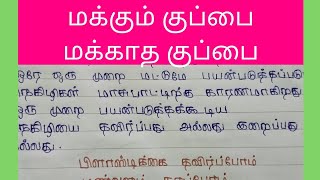 மக்கும் குப்பை
மக்காத குப்பை
ஒரே ஒரு முறை மட்டுமே பயன்படுத்தப்படு
நெகிழிகள் மாசுபாட்டிற்கு காரணமாகிறது
ஒரு முறை பயன்படுத்தக்கூடிய
நெகிழியை தவிர்ப்பது அல்லது குறைப்பது
ல்லது.
பிளாஸ்டிக்கை தவிர்ப்போம்